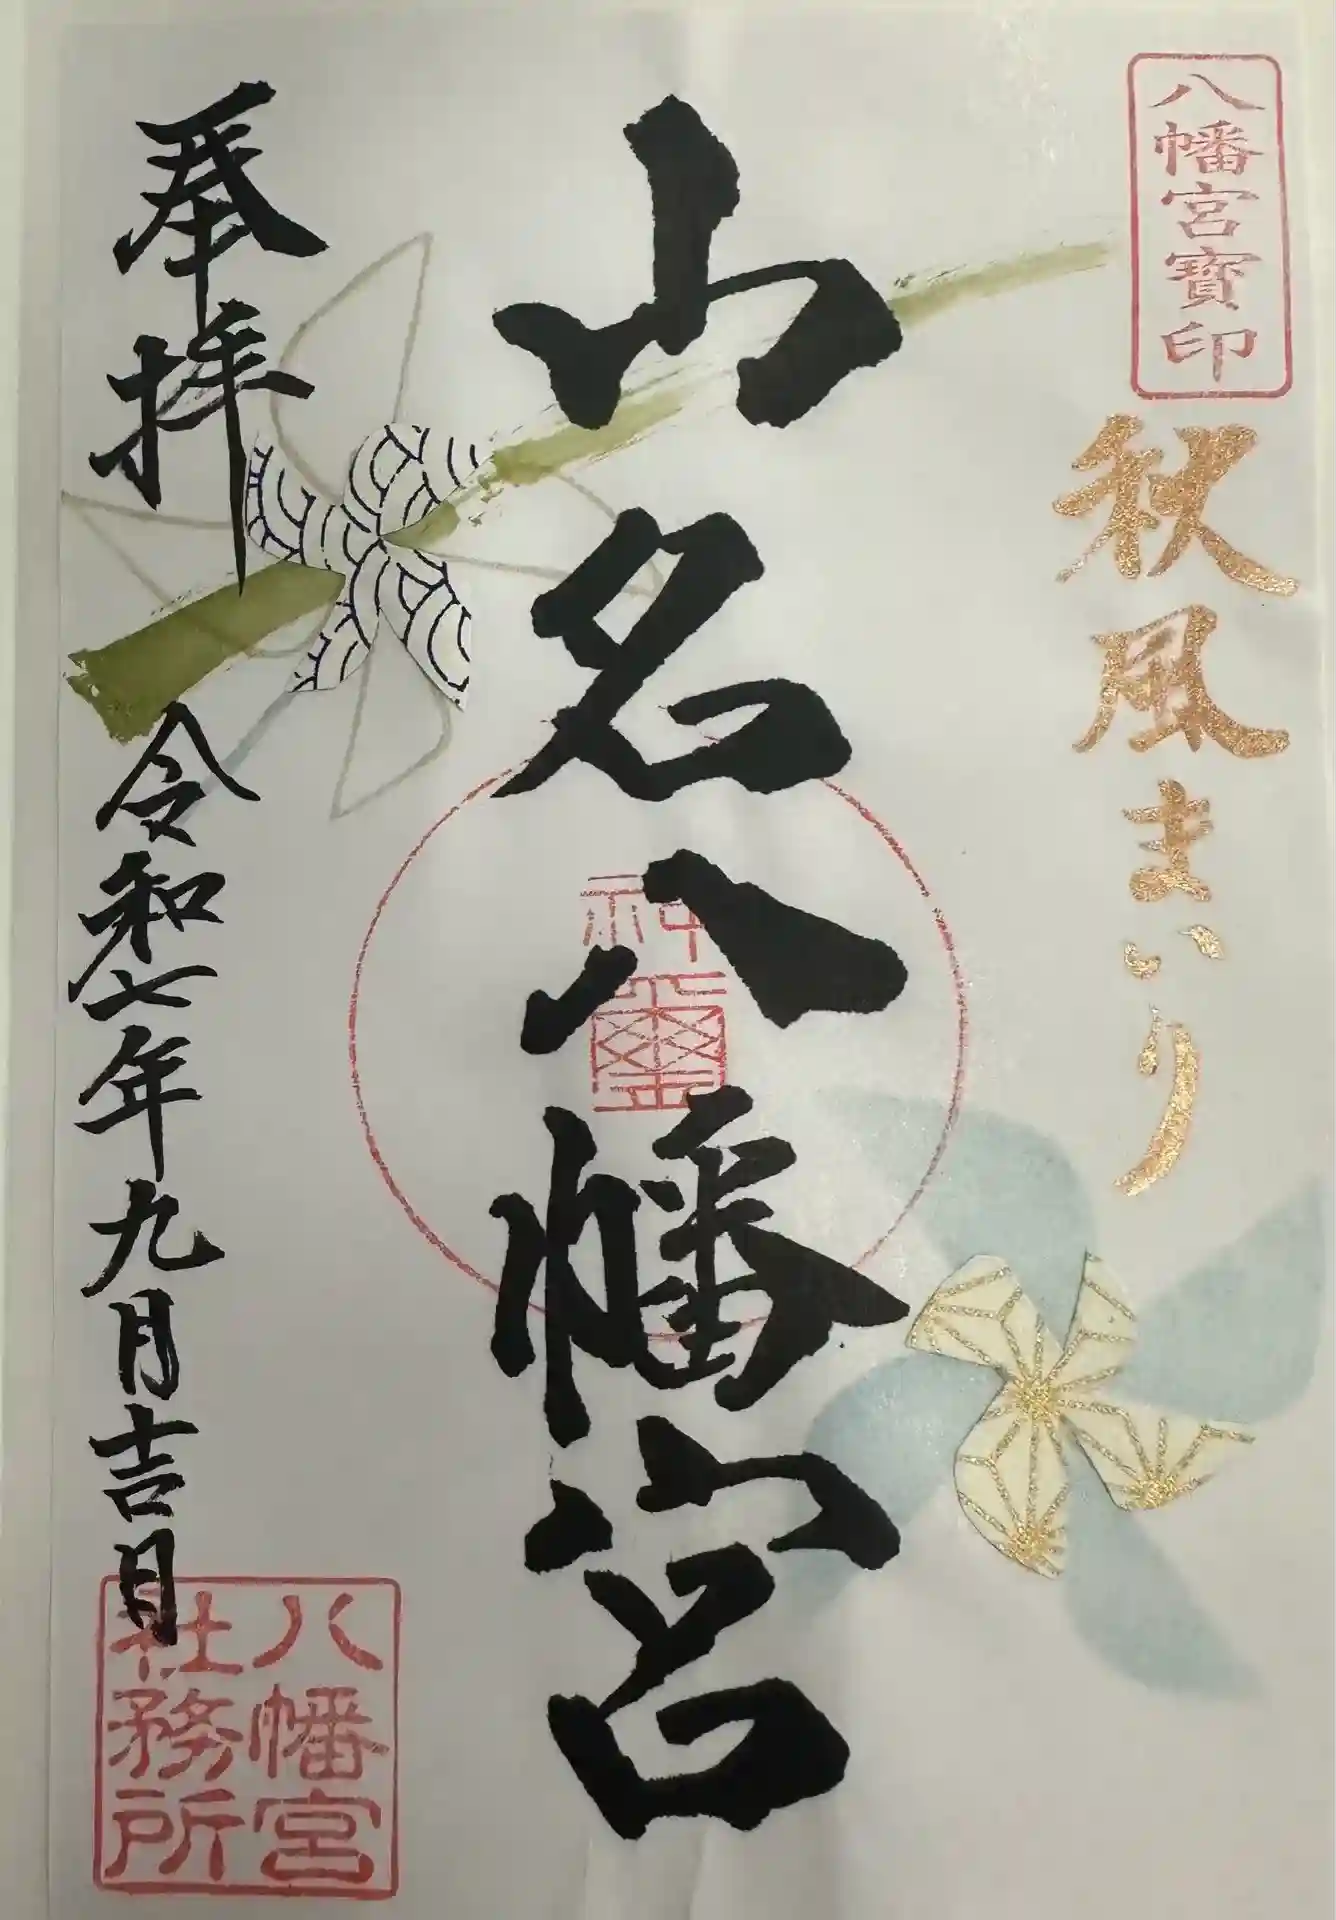 八幡宮寶印
秋風まいり
山名八幡宮
神璽
奉拝
令和七年九月吉日
八幡宮
社務所